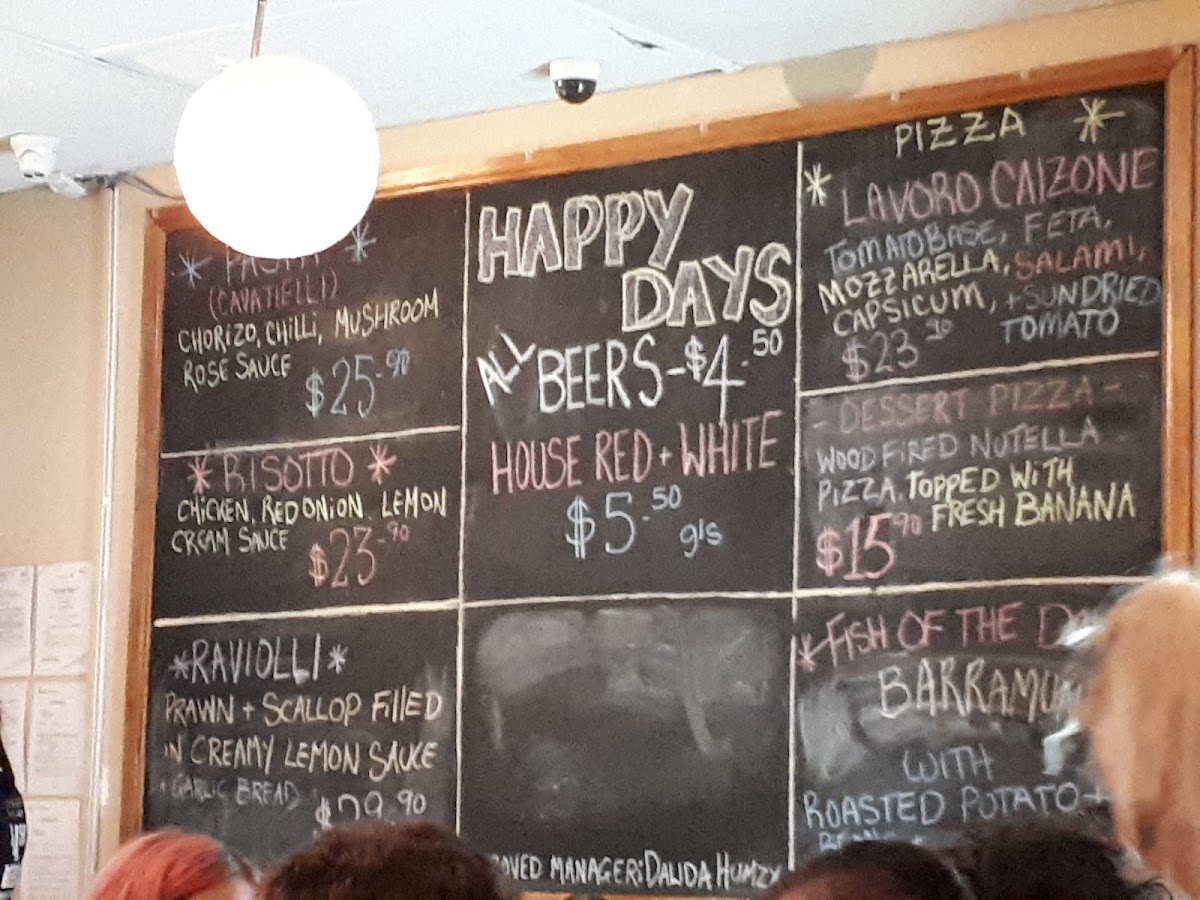 (CAVATIELLI)
CHORIZO, CHILLI, MUSHROOM
ROSE SAUCE
$25.90
RISOTTO
CHICKEN, RED ONION, LEMON
CREAM SAUCE
$23.90
RAVIOLLI
PRAWN + SCALLOP FILLED
IN CREAMY LEMON SAUCE
+ GARLIC BREAD
$29.90
HAPPY
DAYS
ALL BEERS - $4.50
HOUSE RED + WHITE
$5.50
gls
MANAGER: DALIDA HUMZY
PIZZA
LAVORO CALZONE
TOMATO BASE, FETA,
MOZZARELLA, SALAMI,
CAPSICUM, + SUNDRIED
TOMATO
$23.90
- DESSERT PIZZA -
WOODFIRED NUTELLA
PIZZA, TOPPED WITH
FRESH BANANA
$15.90
FISH OF THE
WITH
ROASTED POTATO +